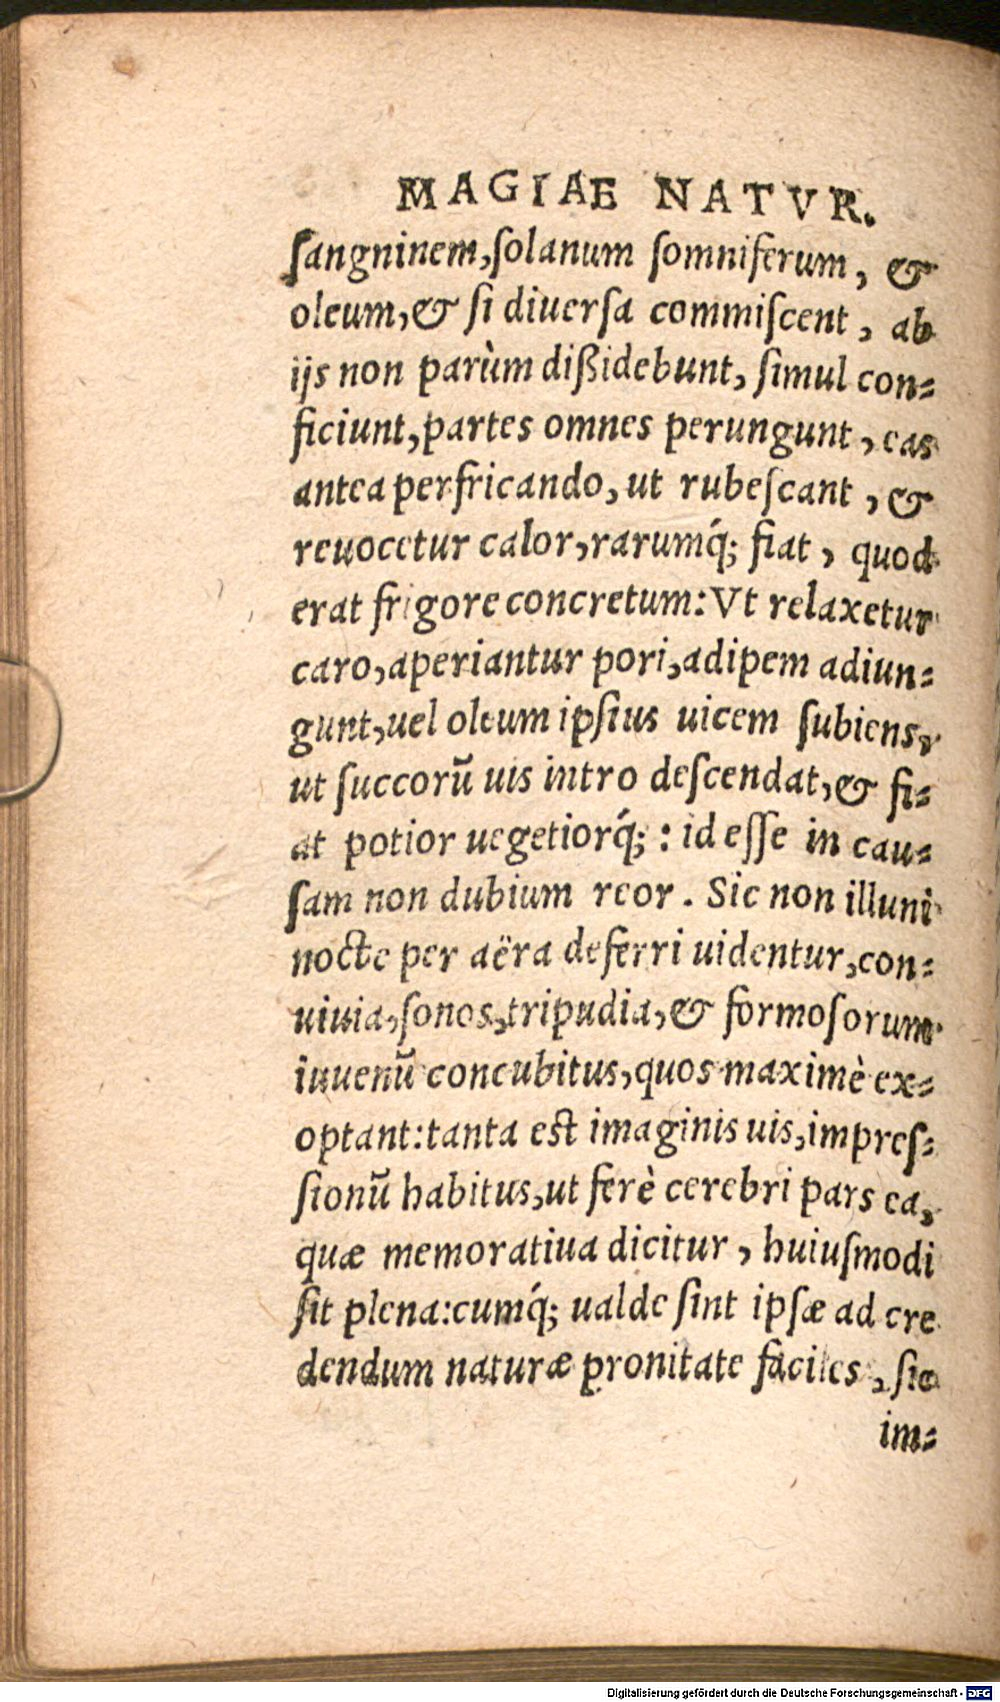 MAGIAE NATVR.
ſangninem,ſolanum ſomniferum, &
oleum,& ſi diuerſa commiſcent, ab
ijs non parùm dißidebunt, ſimul con-
ficiunt,partes omnes perungunt, eas
antea perfricando, ut rubeſcant, &
reuocetur calor,rarumq́; fiat, quod
erat frigore concretum: Vt relaxetur
caro,aperiantur pori,adipem adiun-
gunt,uel oleum ipſius uicem ſubiens,
ut ſuccorū uis intro deſcendat,& fi-
at potior uegetiorq́; : id eſſe in cau-
ſam non dubium reor. Sic non illuni
nocte per aëra deferri uidentur,con-
uiuia,ſonos,tripudia,& formoſorum
iuuenū concubitus,quos maximè ex-
optant: tanta est imaginis uis,impreſ-
ſionū habitus,ut ferè cerebri pars ea,
quæ memoratiua dicitur, huiuſmodi
ſit plena:cumq́; ualde ſint ipſæ ad cre
dendum naturæ pronitate faciles, ſic
im-
Digitalisierung gefördert durch die Deutsche Forschungsgemeinschaft - DFG